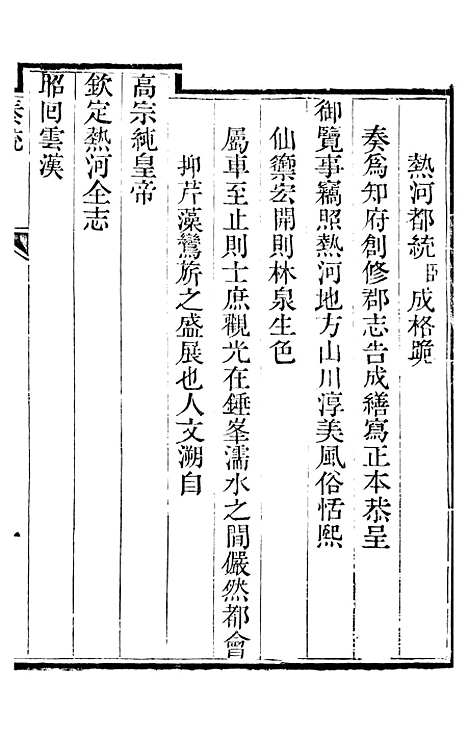 熱河都統臣成格跪
奏爲知府創修郡志告成繕寫正本恭呈
御覽事竊照熱河地方山川淳美風俗恬熙
仙籞宏開則林泉生色
屬車至止則士庶觀光在錘峯濡水之間儼然都會
抑芹藻鸞旂之盛展也人文溯自
高宗純皇帝
欽定熱河全志
昭回雲漢